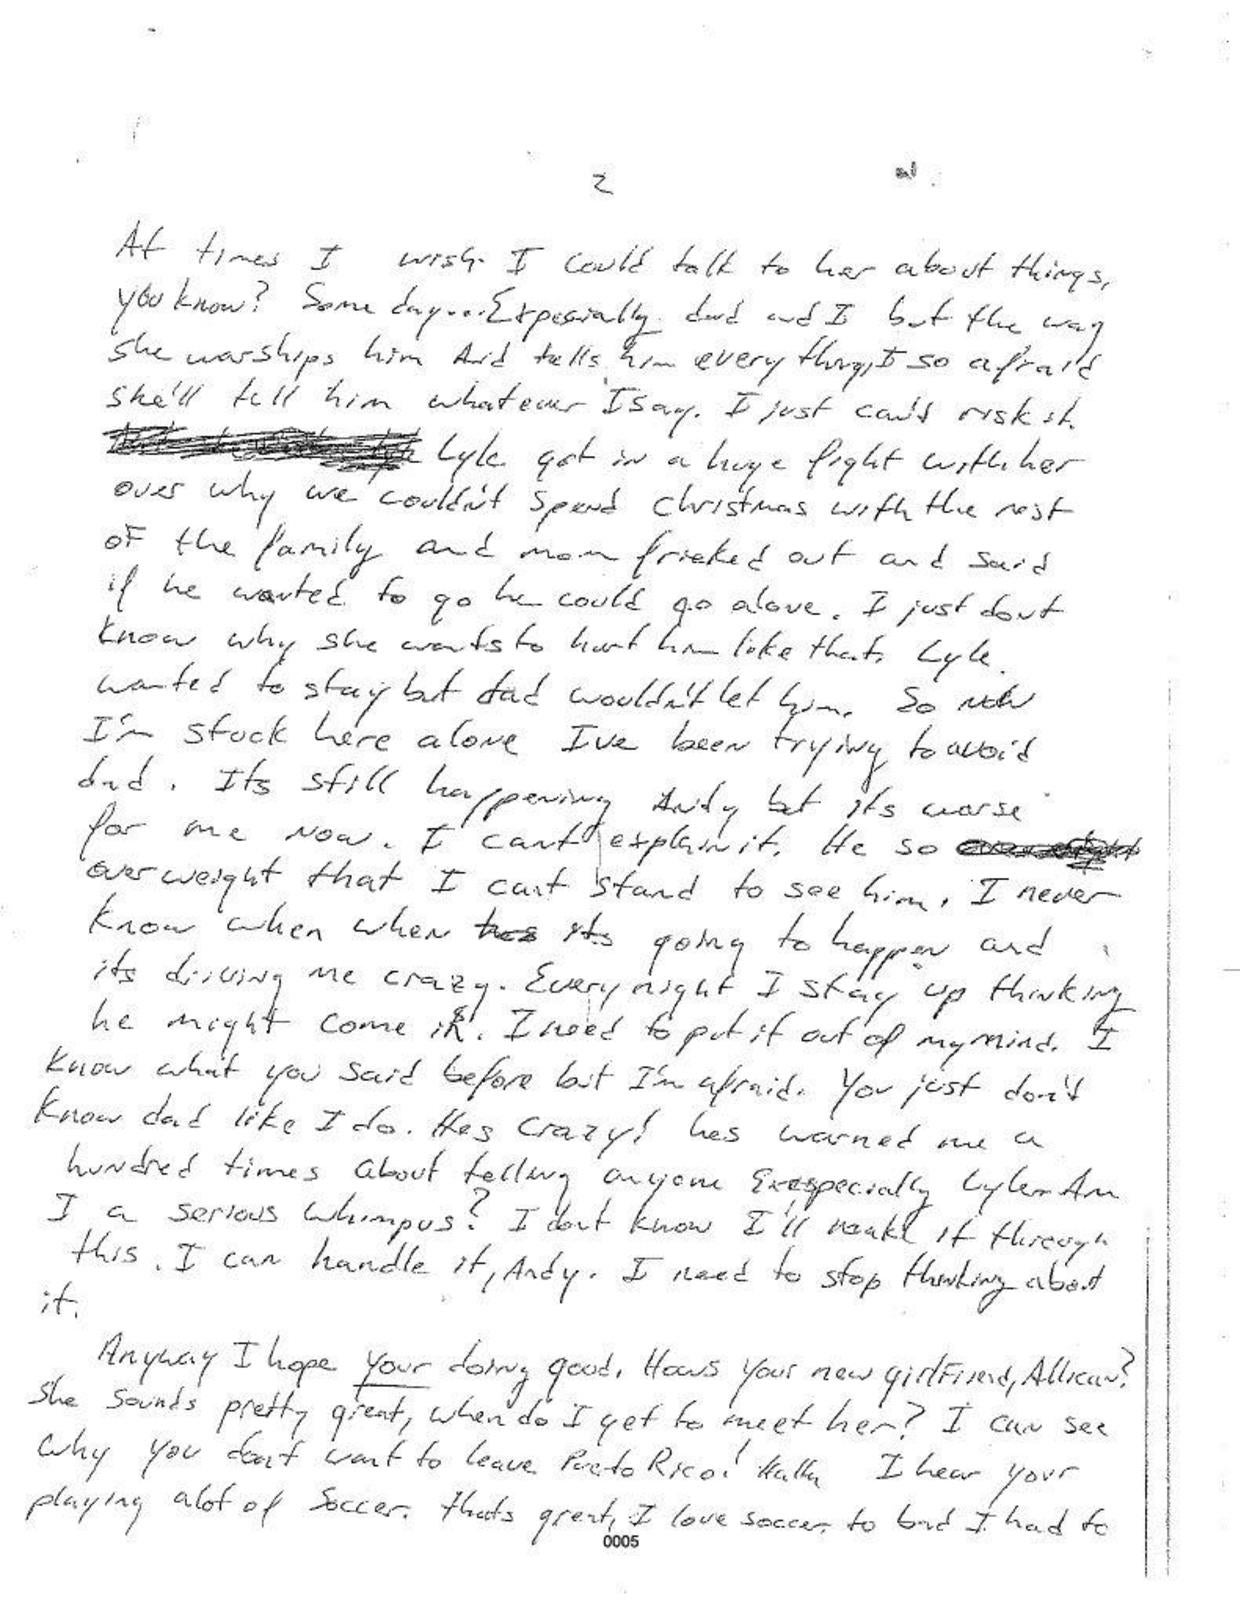 2
At times I wish I could talk to her about things,
you know? Some day... Expecially dad and I but the way
she warships him and tells him everything, I so afraid
she'll tell him whatever I say. I just can't risk it.
Lyle got in a huge fight with her
over why we couldn't spend christmas with the rest
of the family and mom frieked out and said
if he wanted to go he could go alone. I just dont
know why she wants to hurt him like that. Lyle
wanted to stay but dad wouldn't let him. So now
I'm stuck here alone I've been trying to avoid
dad. Its still happening Andy but its worse
for me now. I can't explain it. He so
overweight that I can't stand to see him. I never
know when when its going to happen and
its driving me crazy. Every night I stay up thinking
he might come in. I need to put it out of my mind. I
know what you said before but I'm afraid. You just don't
know dad like I do. Hes crazy! hes warned me a
hundred times about telling anyone Exspecially Lyle. Am
I a serious whimpus? I dont know I'll make it through
this. I can handle it, Andy. I need to stop thinking about
it.
Anyway I hope your doing good. Hows your new girlfriend, Allican?
She sounds pretty great, when do I get to meet her? I can see
why you don't want to leave Puerto Rico! Haha I hear your
playing alot of soccer. thats great, I love soccer. to bad I had to
0005